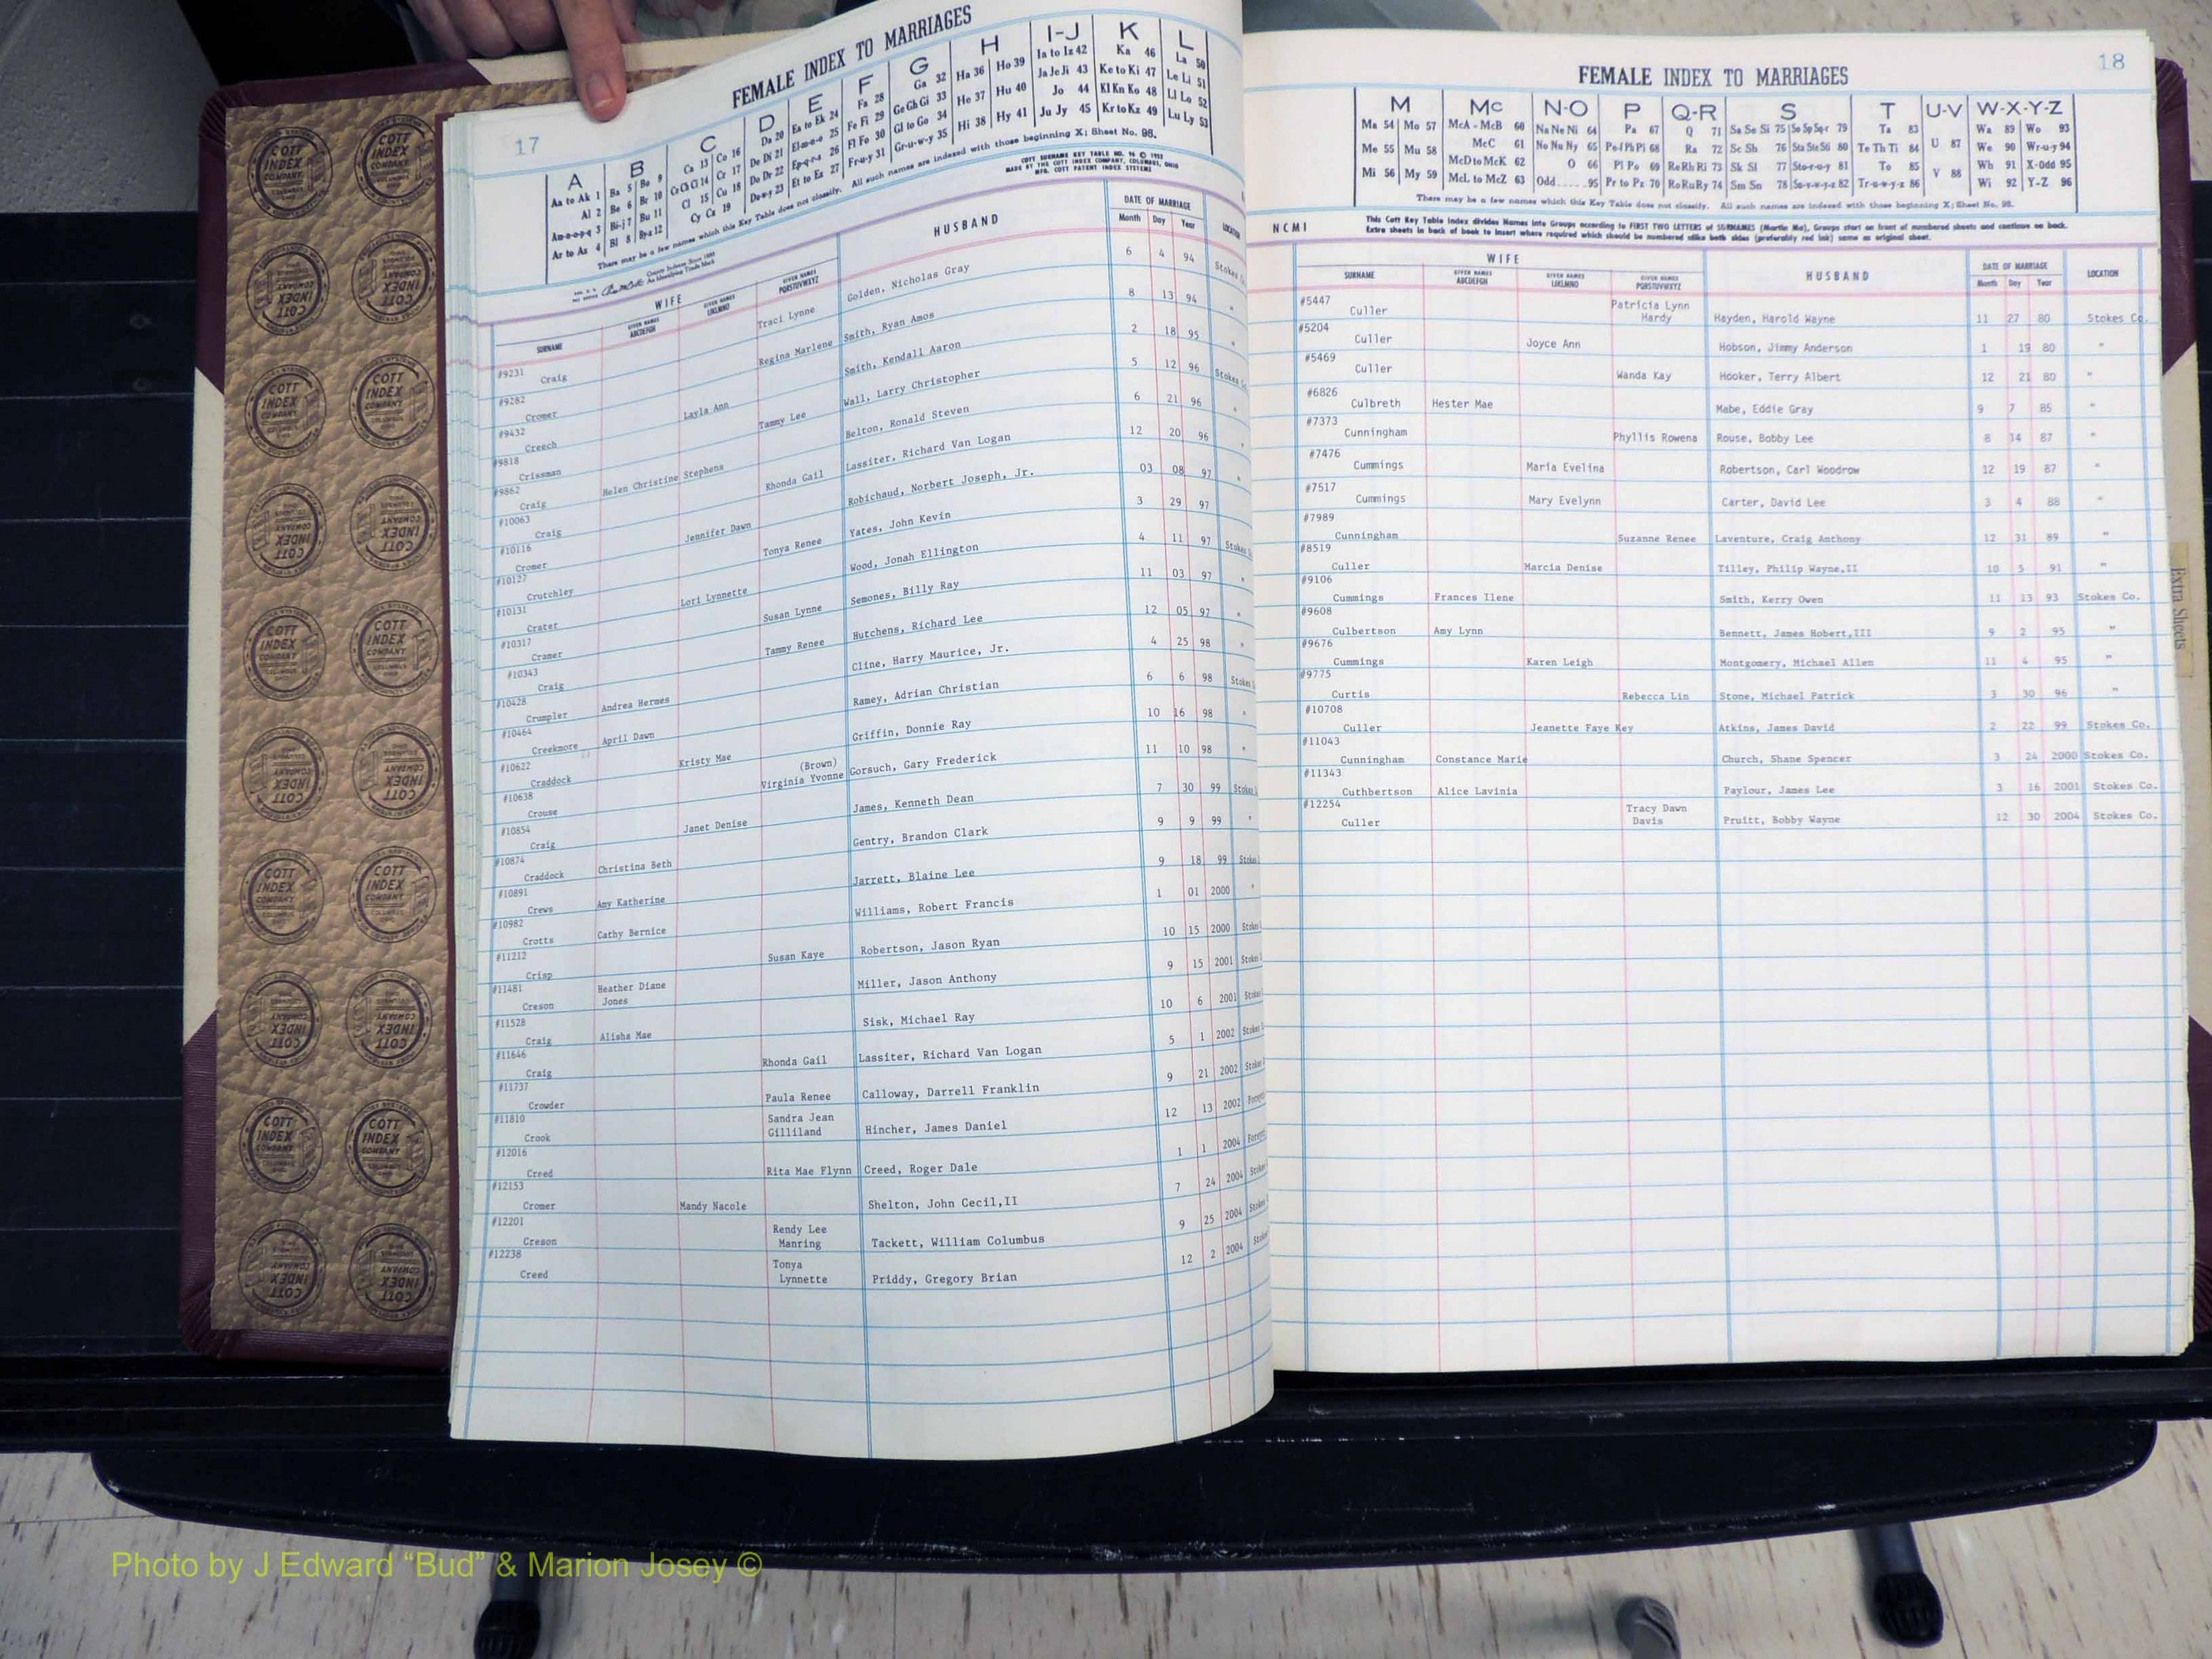 17
FEMALE INDEX TO MARRIAGES
A B C D E F G H I-J K L
Aa to Ak 1 Ba 5 Be 9 Ca 13 Co 16 Da 20 Ea to Ek 24 Fa 28 Ga 32 Ha 36 Ho 39 Ia to Iz 42 Ka 46 La 50
Al 2 Be 6 Br 10 Ce Ch Ci 14 Cr 17 De Di 21 El-m-n-o 25 Fe Fi 29 Ge Gh Gi 33 He 37 Hu 40 Ja Je Ji 43 Ke to Ki 47 Le Li 51
Am-n-o-p-q 3 Bi-j 7 Bu 11 Cl 15 Cu 18 Do Dr 22 Ep-q-r-s 26 Fl Fo 30 Gl to Go 34 Hi 38 Hy 41 Jo 44 Kl Kn Ko 48 Ll Lo 52
Ar to Az 4 Bl 8 By-z 12 Cy Cz 19 Du-w-y 23 Et to Ez 27 Fr-u-y 31 Gr-u-w-y 35 Ju Jy 45 Kr to Kz 49 Lu Ly 53
There may be a few names which this Key Table does not classify. All such names are indexed with those beginning X; Sheet No. 98.
COTT SURNAME KEY TABLE NO. 96 © 1952
MADE BY THE COTT INDEX COMPANY, COLUMBUS, OHIO
MFG. COTT PATENT INDEX SYSTEMS
WIFE HUSBAND DATE OF MARRIAGE LOCATION
SURNAME GIVEN NAMES ABCDEFGH GIVEN NAMES IJKLMNO GIVEN NAMES PQRSTUVWXYZ Month Day Year
#9231 Craig Traci Lynne Golden, Nicholas Gray 6 4 94 Stokes
#9282 Cromer Regina Marlene Smith, Ryan Amos 8 13 94 "
#9432 Creech Layla Ann Smith, Kendall Aaron 2 18 95 "
#9818 Crissman Tammy Lee Wall, Larry Christopher 5 12 96 Stokes
#9862 Craig Helen Christine Stephens Belton, Ronald Steven 6 21 96 "
#10063 Craig Rhonda Gail Lassiter, Richard Van Logan 12 20 96 "
#10116 Cromer Jennifer Dawn Robichaud, Norbert Joseph, Jr. 03 08 97 "
#10127 Crutchley Tonya Renee Yates, John Kevin 3 29 97
#10131 Crater Lori Lynnette Wood, Jonah Ellington 4 11 97 Stokes
#10317 Cramer Susan Lynne Semones, Billy Ray 11 03 97 "
#10343 Craig Tammy Renee Hutchens, Richard Lee 12 05 97 "
#10428 Crumpler Andrea Hermes Cline, Harry Maurice, Jr. 4 25 98 "
#10464 Creekmore April Dawn Ramey, Adrian Christian 6 6 98 Stokes
#10622 Craddock Kristy Mae Griffin, Donnie Ray 10 16 98 "
#10638 Crouse (Brown) Virginia Yvonne Gorsuch, Gary Frederick 11 10 98 "
#10854 Craig Janet Denise James, Kenneth Dean 7 30 99 Stokes
#10874 Craddock Christina Beth Gentry, Brandon Clark 9 9 99 "
#10891 Crews Amy Katherine Jarrett, Blaine Lee 9 18 99 Stokes
#10982 Crotts Cathy Bernice Williams, Robert Francis 1 01 2000 "
#11212 Crisp Susan Kaye Robertson, Jason Ryan 10 15 2000 Stokes
#11481 Creson Heather Diane Jones Miller, Jason Anthony 9 15 2001 Stokes
#11528 Craig Alisha Mae Sisk, Michael Ray 10 6 2001 Stokes
#11646 Craig Rhonda Gail Lassiter, Richard Van Logan 5 1 2002 Stokes
#11737 Crowder Paula Renee Calloway, Darrell Franklin 9 21 2002 Stokes
#11810 Crook Sandra Jean Gilliland Hincher, James Daniel 12 13 2002 Forsyth
#12016 Creed Rita Mae Flynn Creed, Roger Dale 1 1 2004 Forsyth
#12153 Cromer Mandy Nacole Shelton, John Cecil,II 7 24 2004 Stokes
#12201 Creson Rendy Lee Manring Tackett, William Columbus 9 25 2004 Stokes
#12238 Creed Tonya Lynnette Priddy, Gregory Brian 12 2 2004 Stokes
18
FEMALE INDEX TO MARRIAGES
M Mc N-O P Q-R S T U-V W-X-Y-Z
Ma 54 Mo 57 McA - McB 60 Na Ne Ni 64 Pa 67 Q 71 Sa Se Si 75 So Sp Sq-r 79 Ta 83 U 87 Wa 89 Wo 93
Me 55 Mu 58 McC 61 No Nu Ny 65 Pe-f Ph Pi 68 Ra 72 Sc Sh 76 Sta Ste Sti 80 Te Th Ti 84 V 88 We 90 Wr-u-y 94
Mi 56 My 59 McD to McK 62 O 66 Pl Po 69 Re Rh Ri 73 Sk Sl 77 Sto-r-u-y 81 To 85 Wh 91 X-Odd 95
McL to McZ 63 Odd......95 Pr to Pz 70 Ro Ru Ry 74 Sm Sn 78 Su-v-w-y-z 82 Tr-u-w-y-z 86 Wi 92 Y-Z 96
There may be a few names which this Key Table does not classify. All such names are indexed with those beginning X; Sheet No. 98.
NCMI
This Cott Key Table Index divides Names into Groups according to FIRST TWO LETTERS of SURNAMES (Martin Ma), Groups start on front of numbered sheets and continue on back.
Extra sheets in back of book to insert where required which should be numbered alike both sides (preferably red ink) same as original sheet.
WIFE HUSBAND DATE OF MARRIAGE LOCATION
SURNAME GIVEN NAMES ABCDEFGH GIVEN NAMES IJKLMNO GIVEN NAMES PQRSTUVWXYZ Month Day Year
#5447 Culler Patricia Lynn Hardy Hayden, Harold Wayne 11 27 80 Stokes Co.
#5204 Culler Joyce Ann Hobson, Jimmy Anderson 1 19 80 "
#5469 Culler Wanda Kay Hooker, Terry Albert 12 21 80 "
#6826 Culbreth Hester Mae Mabe, Eddie Gray 9 7 85 "
#7373 Cunningham Phyllis Rowena Rouse, Bobby Lee 8 14 87 "
#7476 Cummings Maria Evelina Robertson, Carl Woodrow 12 19 87 "
#7517 Cummings Mary Evelynn Carter, David Lee 3 4 88 "
#7989 Cunningham Suzanne Renee Laventure, Craig Anthony 12 31 89 "
#8519 Culler Marcia Denise Tilley, Philip Wayne,II 10 5 91 "
#9106 Cummings Frances Ilene Smith, Kerry Owen 11 13 93 Stokes Co.
#9608 Culbertson Amy Lynn Bennett, James Hobert,III 9 2 95 "
#9676 Cummings Karen Leigh Montgomery, Michael Allen 11 4 95 "
#9775 Curtis Rebecca Lin Stone, Michael Patrick 3 30 96 "
#10708 Culler Jeanette Faye Key Atkins, James David 2 22 99 Stokes Co.
#11043 Cunningham Constance Marie Church, Shane Spencer 3 24 2000 Stokes Co.
#11343 Cuthbertson Alice Lavinia Paylour, James Lee 3 16 2001 Stokes Co.
#12254 Culler Tracy Dawn Davis Pruitt, Bobby Wayne 12 30 2004 Stokes Co.
Extra Sheets
COTT INDEX COMPANY
Photo by J Edward “Bud” & Marion Josey ©